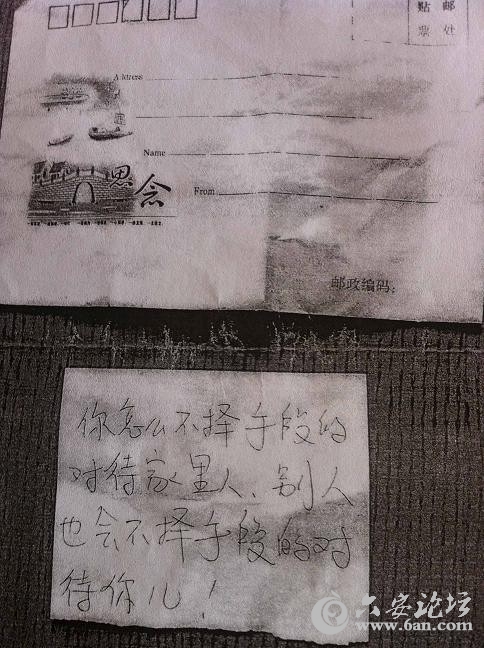 贴 邮
票 处
Address
Name
From
思念
邮政编码:
你怎么不择手段的
对待家里人、别人
也会不择手段的对
待你儿!
六安论坛
www.6an.com